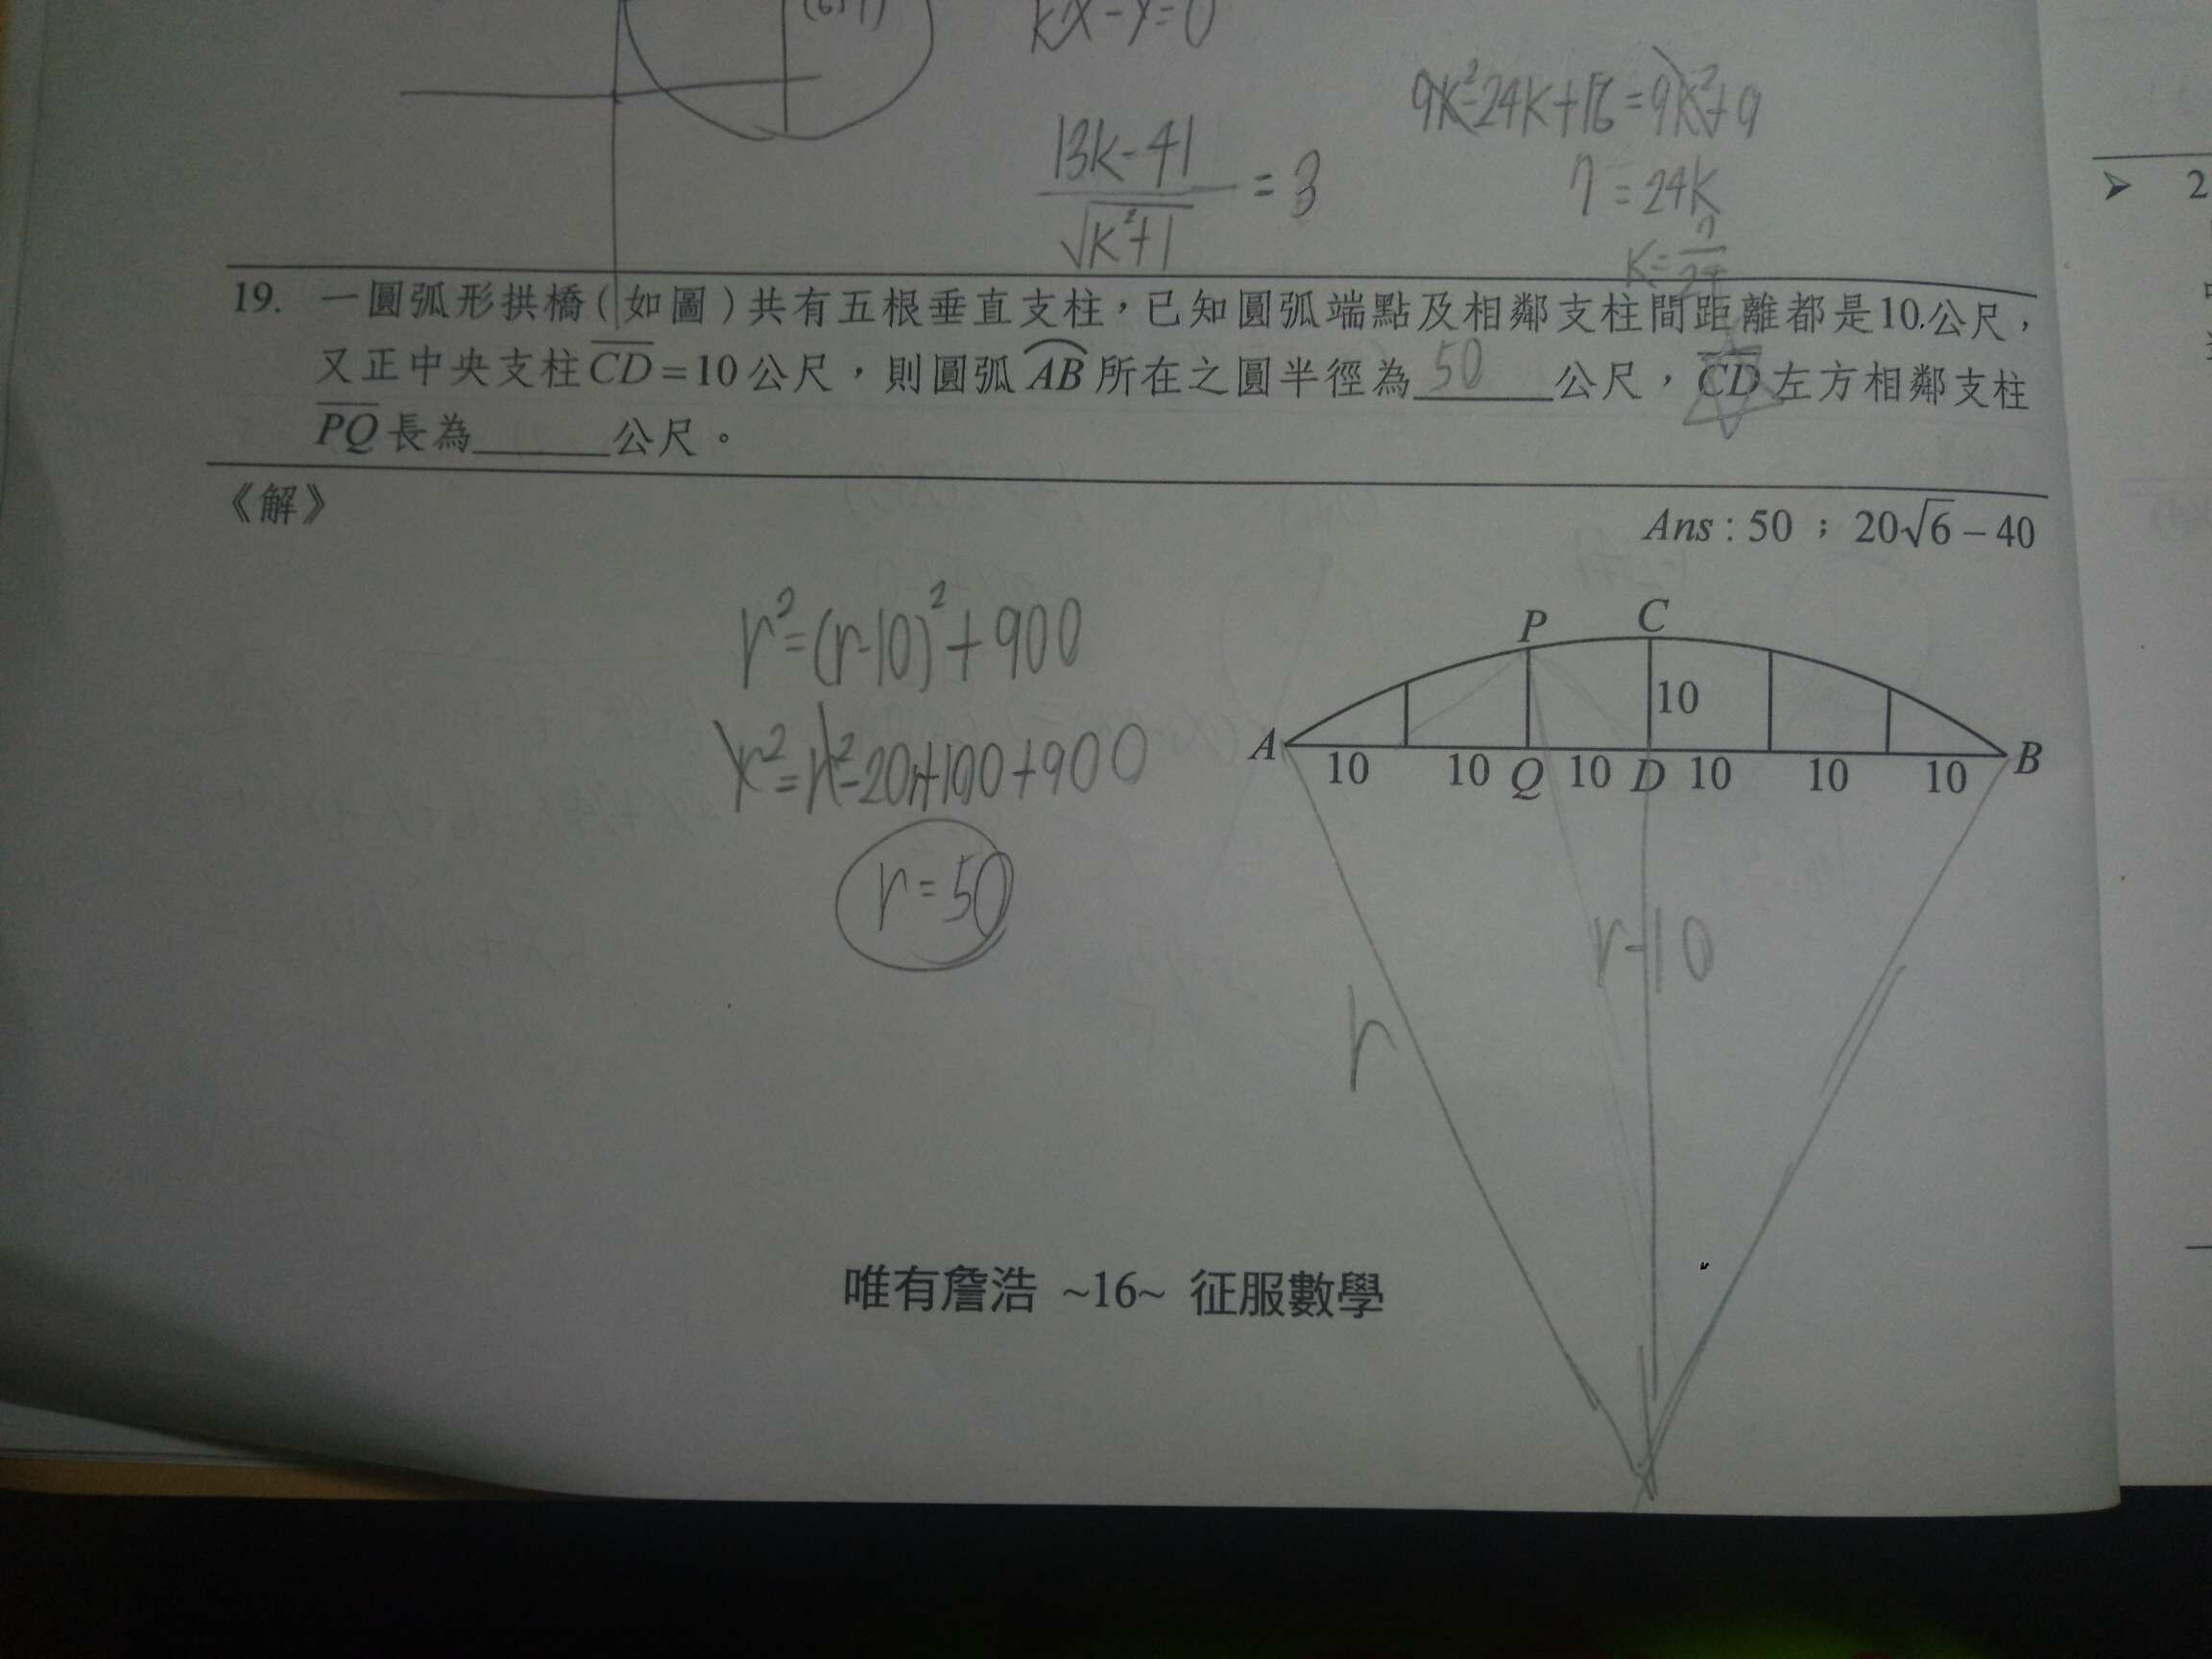 kx-y=0
9k²-24k+16=9k²+9
|3k-4|
√k²+1
=3
7=24k
k=7/24
19. 一圓弧形拱橋(如圖)共有五根垂直支柱，已知圓弧端點及相鄰支柱間距離都是10公尺，
又正中央支柱CD=10公尺，則圓弧AB所在之圓半徑為 50 公尺，CD左方相鄰支柱
PQ長為______公尺。
《解》
Ans : 50 ； 20√6 – 40
r²=(r-10)²+900
r²=r²-20r+100+900
r=50
P C
10
A B
10 10 Q 10 D 10 10 10
r-10
r
唯有詹浩 ~16~ 征服數學
2